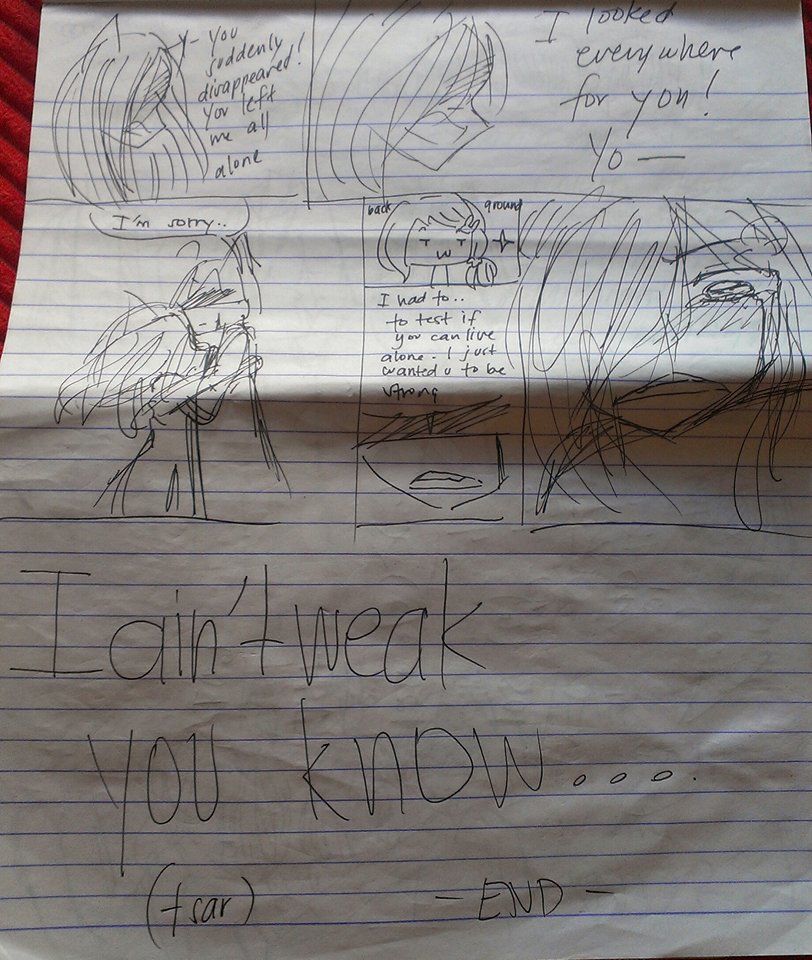 Y- You
suddenly
disappeared!
You left
me all
alone
I looked
everywhere
for you!
Yo—
I'm sorry..
back ground
I had to..
to test if
you can live
alone. I just
wanted u to be
strong
I ain't weak
you know....
(tsar)
- END -